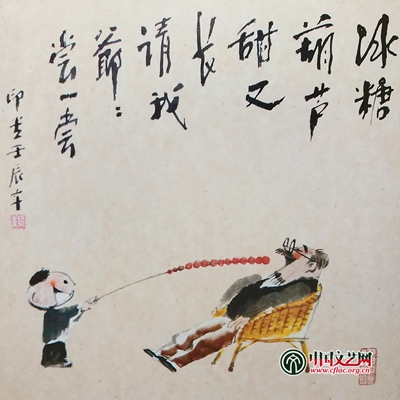 冰糖
葫芦
甜又
长
请我
爺:
尝一尝
壬辰年
中国文艺网
www.cflac.org.cn